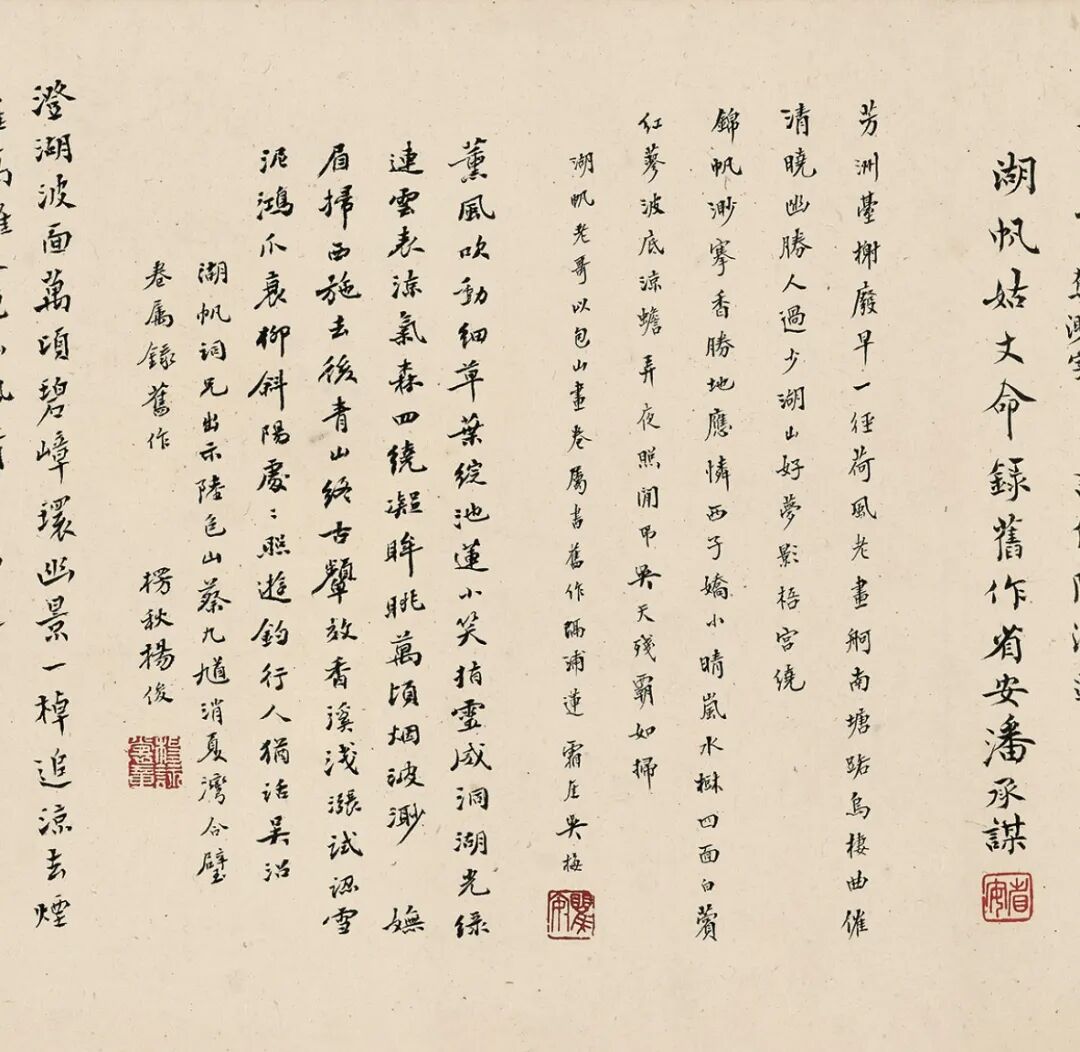 湖帆姑丈命録舊作省安潘承謀
省安
芳洲臺榭廢早一徑荷風老畫舸南塘路烏棲曲催
清曉幽勝人過少湖山好夢影梧宮繞
錦帆渺搴香勝地應憐西子嬌小晴嵐水槛四面白蘋
紅蓼波底涼蟾弄夜照閒弔吳天殘霸如掃
湖帆老哥以包山畫卷屬書舊作隔浦蓮 霜厓吳梅
瞿安
薰風吹動細草葉綻池蓮小笑指靈威洞湖光綠
連雲表涼氣森四繞凝眸眺萬頃烟波渺 嫵
眉掃西施去後青山終古顰效香溪淺漲試認雪
泥鴻爪衰柳斜陽處〻照遊釣行人猶話吳沼
湖帆詞兄出示陸包山蔡九逵消夏灣合璧
卷屬錄舊作 楞秋揚俊
澄湖波面萬頃碧嶂環幽景一棹追涼去煙